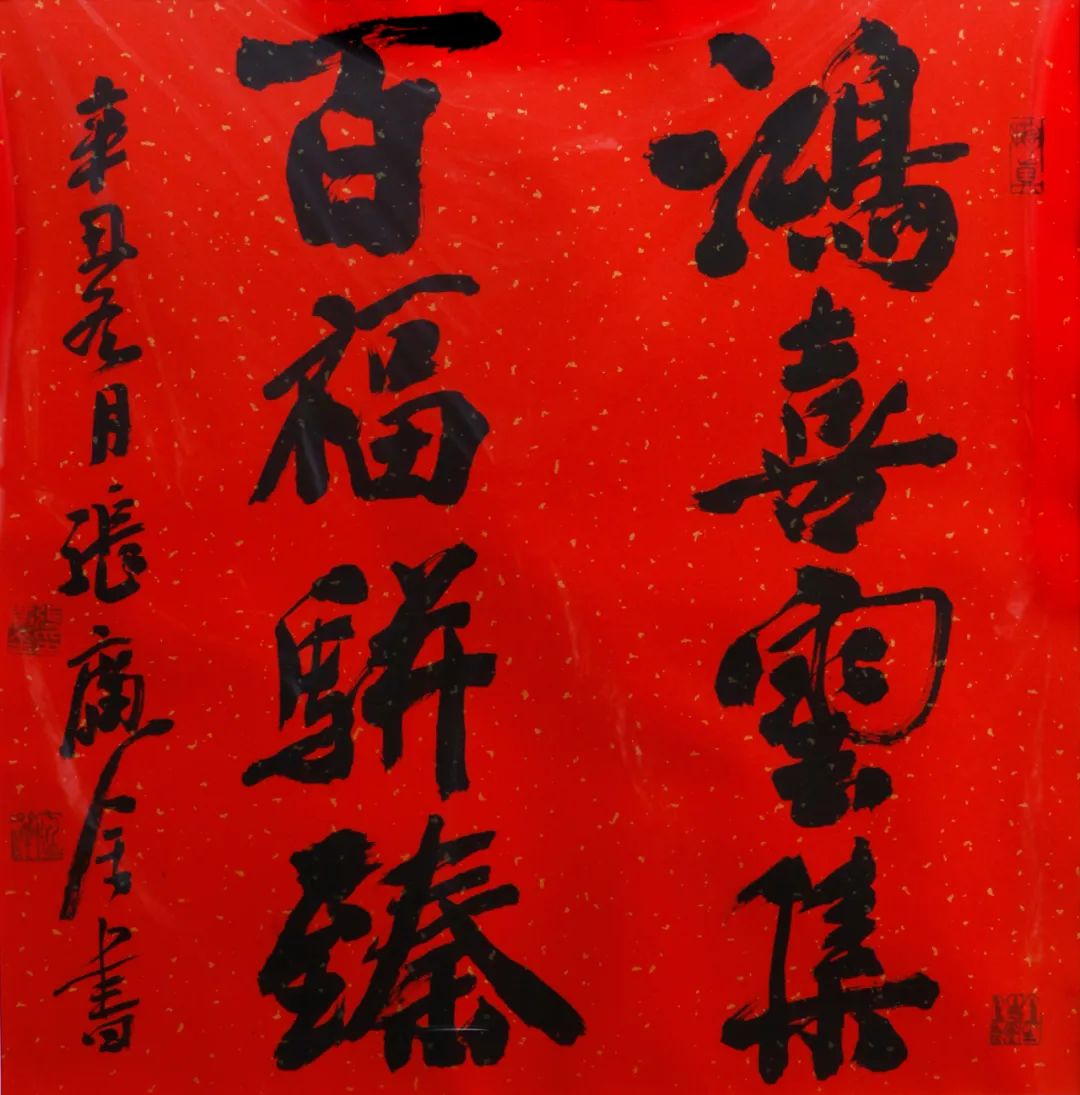 鴻喜雲集
百福駢臻
辛丑冬月張廣金書